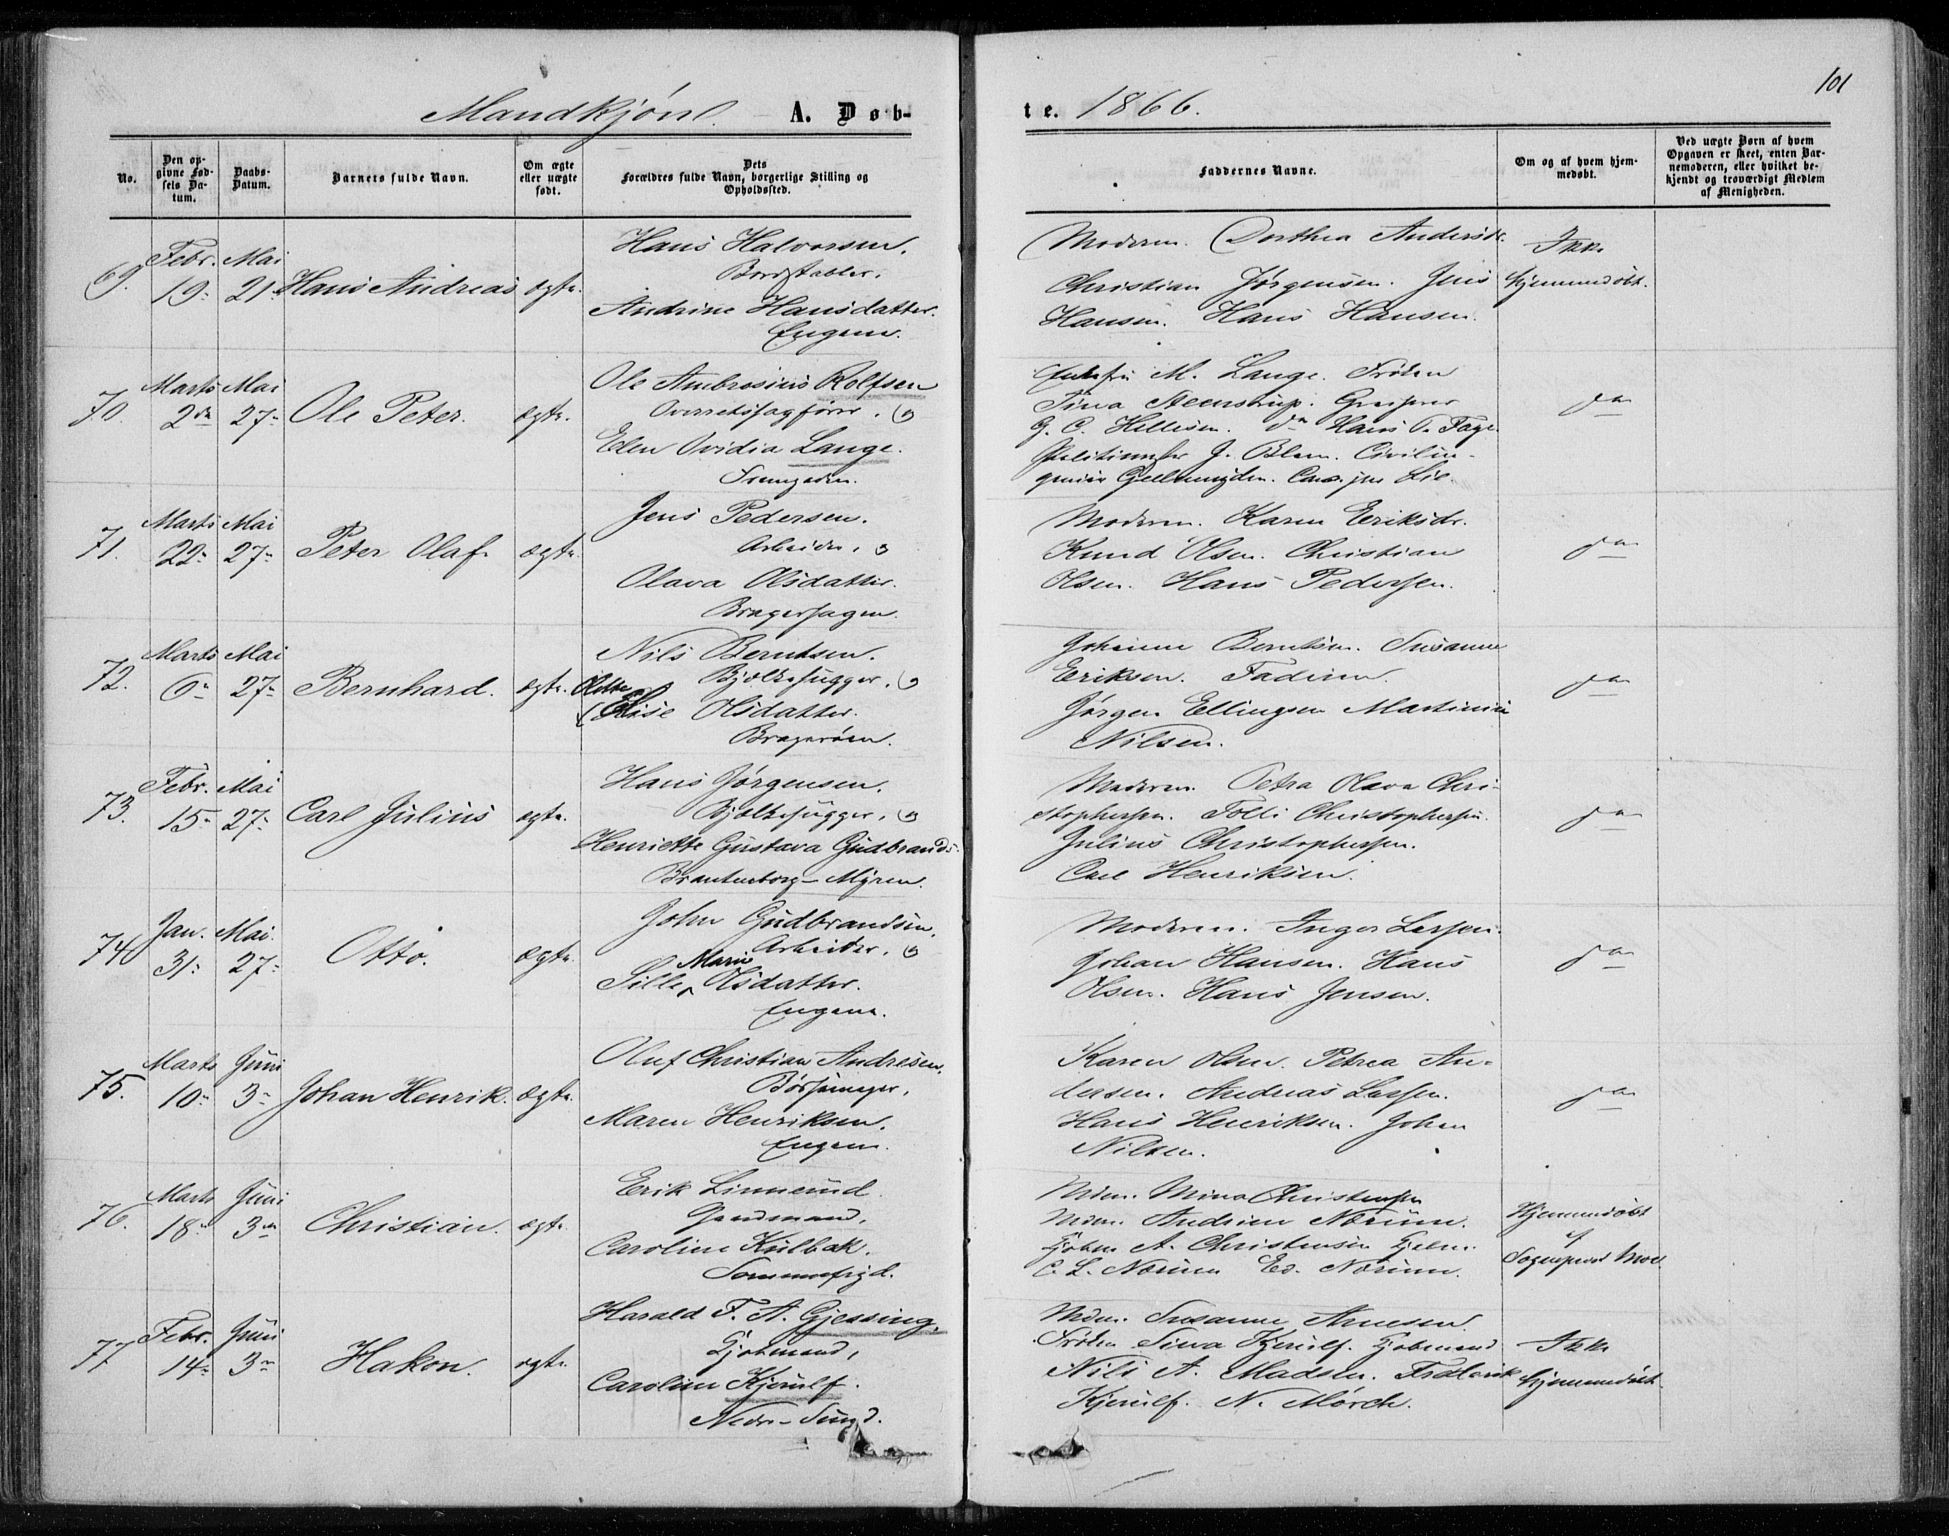 101
Mandkjön. A. Døb-
te. 1866.
No.
Den op-
givne Fød-
sels Da-
tum.
Daabs-
Datum.
Barnets fulde Navn.
Om ægte
eller uægte
født.
Dets
Forældres fulde Navn, borgerlige Stilling og
Opholdssted.
Faddernes Navne.
Om og af hvem hjem-
medøbt.
Ved uægte Børn af hvem
Opgaven er skeet, enten Bar-
nemoderen, eller hvilket be-
kjendt og troværdigt Medlem
af Menigheden.
69. Febr. 19. Mai 21. Hans Andreas ægte.
Hans Halvorsen.
Bordstabler.
Andrine Hansdatter.
Engene.
Moderen. Dorthea Andersd.
Christian Jørgensen. Jens
Hansen. Hans Hansen.
Ikke
hjemmedøbt.
70. Marts 2den Mai 27. Ole Peter. ægte.
Ole Ambrosius Rolfsen
Overretssagfører. og
Elen Ovidia Lange.
M. Lange. Frøken
Tina Steenstrup.
G. C. Hellesen. Hans
J. Blom. Civilin-
Lie.
do
71. Marts 22. Mai 27. Peter Olaf. ægte.
Jens Pedersen.
Arbeider, og
Olava Olsdatter.
Bragerhagen.
Moderen. Karen Eriksdr.
Knud Olsen. Christian
Olsen. Hans Pedersen.
do
72. Marts 6. Mai 27. Bernhard. ægte.
Nils Berntsen.
Bjelkehugger. og
Else Olsdatter.
Bragerøen.
Berntsen. Susanne
Eriksen. Faderen.
Jørgen Ellingsen
Nilsen.
do
73. Febr. 15. Mai 27. Carl Julius ægte.
Hans Jørgensen.
Bjelkehugger. og
Henriette Gustava Gudbrands-
Brantenborg-Myren.
Moderen. Petra Olava Chri-
stophersen. Christophersen.
Julius Christophersen.
Carl Henriksen.
do
74. Jan. 31. Mai 27. Otto. ægte.
John Gudbrandsen.
Arbeider. og
Sille Marie Olsdatter.
Engene.
Moderen. Inger Larsen.
Johan Hansen. Hans
Olsen. Hans Jensen.
do
75. Marts 10. Juni 3. Johan Henrik. ægte.
Oluf Christian Andresen.
Maren Henriksen.
Engene.
Karen Olsen. Petrea An-
dersen. Andreas Larsen.
Hans Henriksen. Johan
Nilsen.
do
76. Marts 18. Juni 3. Christian. ægte.
Erik Linnerud.
Caroline Kulbak.
Mdm. Mina Christensen
Mdm. Andrine Nørum.
A. Christensen
C. L. Nørum Ed. Nørum.
Hjemmedøbt
af
Sognepræst Moe
77. Febr. 14. Juni 3. Hakon. ægte.
Harald F. A. Gjessing.
Kjøbmand,
Caroline Kjerulf.
Nedre-Sund.
Mdm. Susanne Arnesen.
Frøken Kjerulf. Kjøbmand
Nils A. Madsen. Frederik
Kjerulf. N. Mørch.
Ikke
hjemmedøbt.